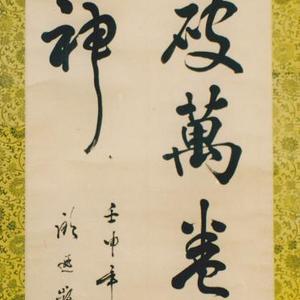 破萬卷
神
壬申年